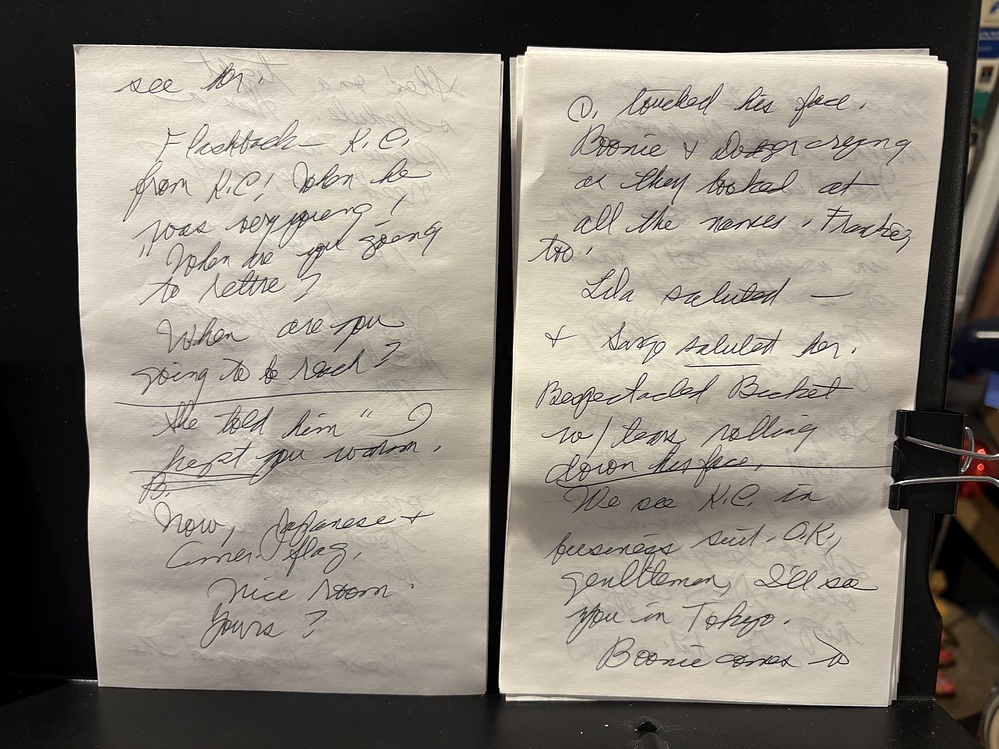 see her.
Flashback - K.C.
from K.C., When he
was very young,
"When are you going
to retire?
When are you
going to teach?
She told him " I
kept you warm.
B.
Now, Japanese +
Amer. flag.
Nice room.
Yours?
D. touched his face.
Boonie & crying
as they looked at
all the names.
too.
Lila saluted —
+ Sarge saluted her.
Bespectacled Bucket
w/ tears rolling
down his face.
We see K.C. in
business suit. O.K.,
gentlemen, I'll see
you in Tokyo.
Boonie comes →